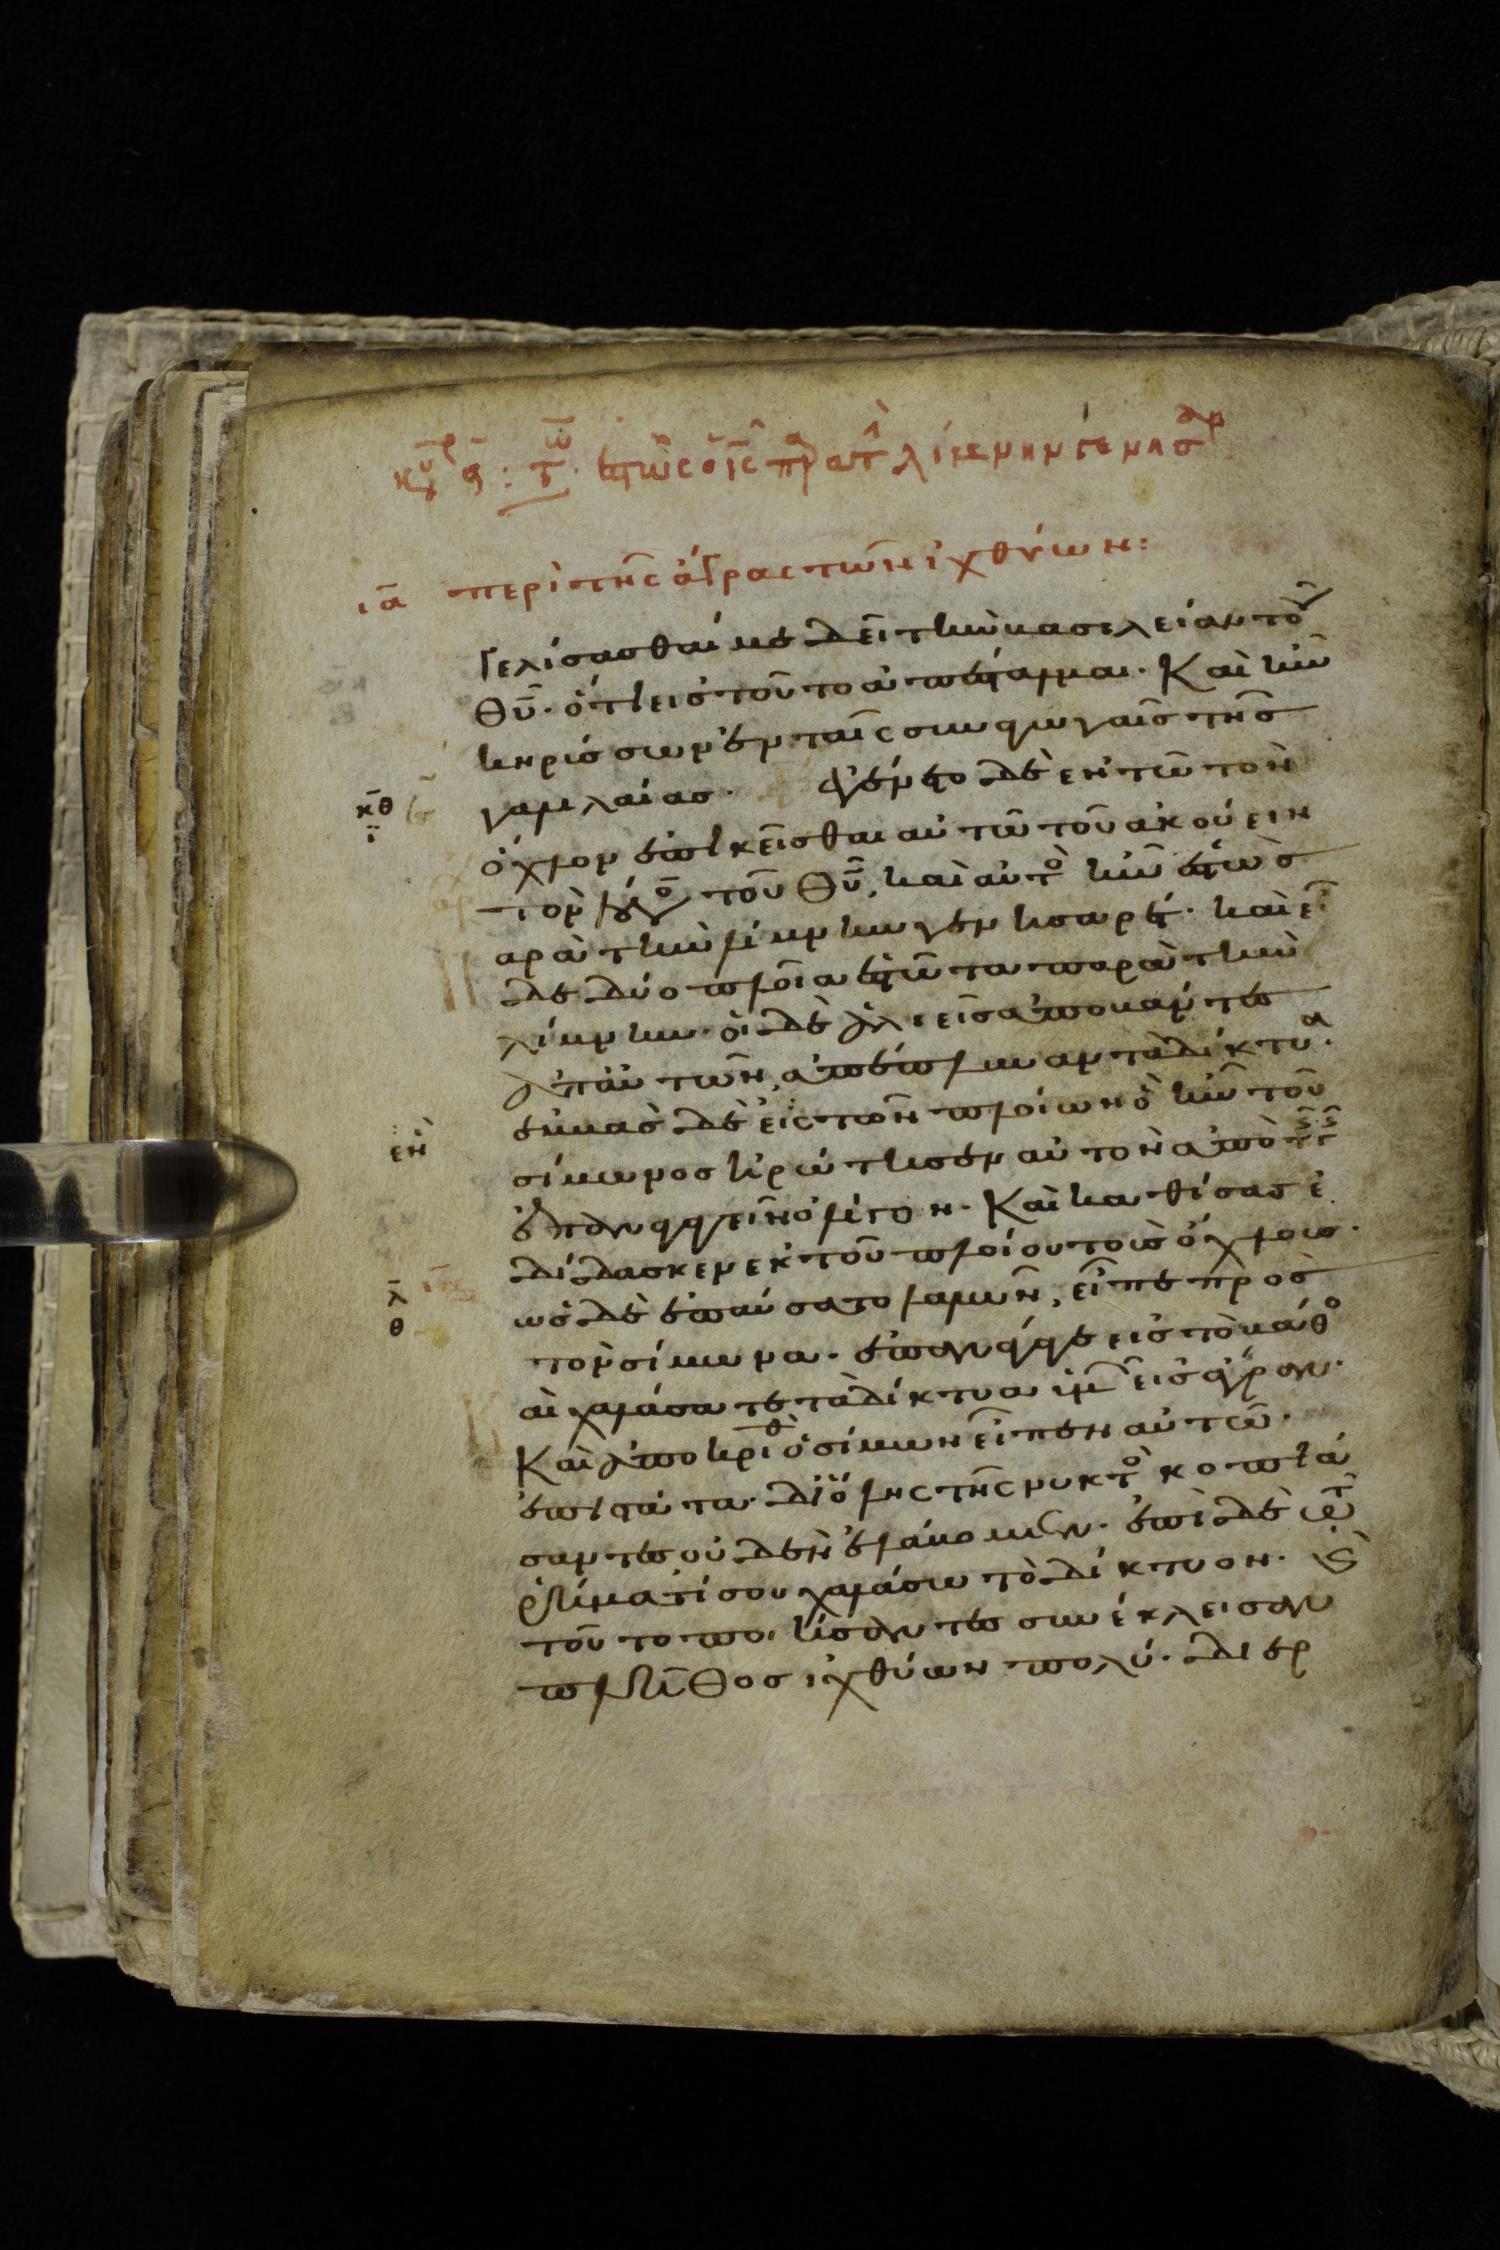 ια περὶ τῆς ἄγρας τῶν ἰχθύων:
γελίσασθαί με δεῖ τὴν βασιλείαν τοῦ
θυ̅. ὅτι εἰς τοῦτο ἀπέσταλμαι. Καὶ ἦν
κηρύσσων ἐν ταῖς συναγωγαῖς τῆς
γαλιλαίας. ἐγένετο δὲ ἐν τῶ τὸν
κθ
ι
ὄχλον ἐπικεῖσθαι αὐτῶ τοῦ ἀκούειν
τὸν λόγον τοῦ θυ̅, καὶ αὐτὸ ἦν ἑστὼς
παρὰ τὴν λίμνην γεννησαρέτ. καὶ εἶ
δε δύο πλοῖα ἑστῶτα παρὰ τὴν
λίμνην. οἱ δὲ ἁλιεῖς ἀποβάντες
ἀπ' αὐτῶν, ἀπέπλυναν τὰ δίκτυα.
ἐμβὰς δὲ εἰς ἓν τῶν πλοίων ὃ ἦν τοῦ
σίμωνος ἠρώτησεν αὐτὸν ἀπὸ τῆς γῆς
ἐπαναγαγεῖν ὀλίγον. Καὶ καθίσας ἐ
δίδασκεν ἐκ τοῦ πλοίου τοὺς ὄχλους.
λ
θ
ὡς δὲ ἐπαύσατο λαλῶν, εἶπε πρὸς
τὸν σίμωνα. ἐπανάγαγε εἰς τὸ βάθο
καὶ χαλάσατε τὰ δίκτυα ὑμῶν εἰς ἄγραν.
Καὶ ἀποκριθ ὁ σίμων εἶπεν αὐτῶ.
ἐπιστάτα. δι' ὅλης τῆς νυκτὸ κοπιά
σαντες οὐδὲν ἐλάβομεν. ἐπὶ δὲ τῶ
ῥήματί σου χαλάσω τὸ δίκτυον. Καὶ
τοῦτο ποιήσαντες συνέκλεισαν
πλῆθος ἰχθύων πολύ. διερ